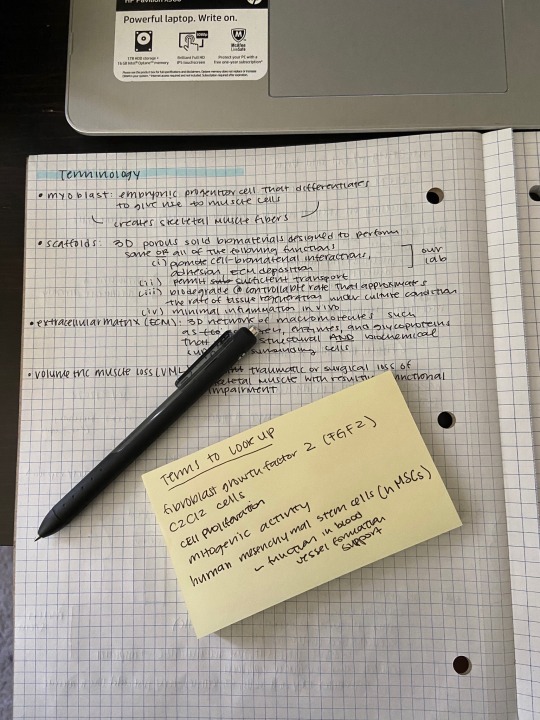 HP Pavilion x360
Powerful laptop. Write on.
1TB HDD storage +
16 GB Intel® Optane™ memory
Brilliant Full HD
IPS touchscreen
1080p
McAfee
LiveSafe
Protect your PC with a
free one-year subscription
Terminology
• myoblast: embryonic progenitor cell that differentiates
to give rise to muscle cells
creates skeletal muscle fibers
• scaffolds: 3D porous solid biomaterials designed to perform
some or all of the following functions:
(i) promote cell-biomaterial interactions,
adhesion, ECM deposition
our
lab
(ii) permit sufficient transport
(iii) biodegrade @ controllable rate that approximates
the rate of tissue regeneration under culture condition
(iv) minimal inflammation in vivo
• extracellular matrix (ECM): 3D network of macromolecules such
as enzymes, and glycoproteins
that structural AND biochemical
surrounding cells
• volumetric muscle loss (VML): traumatic or surgical loss of
skeletal muscle with resultant functional
impairment
Terms to look up
fibroblast growth factor 2 (FGF2)
C2C12 cells
cell proliferation
mitogenic activity
human mesenchymal stem cells (hMSCs)
~ function in blood
vessel formation
support